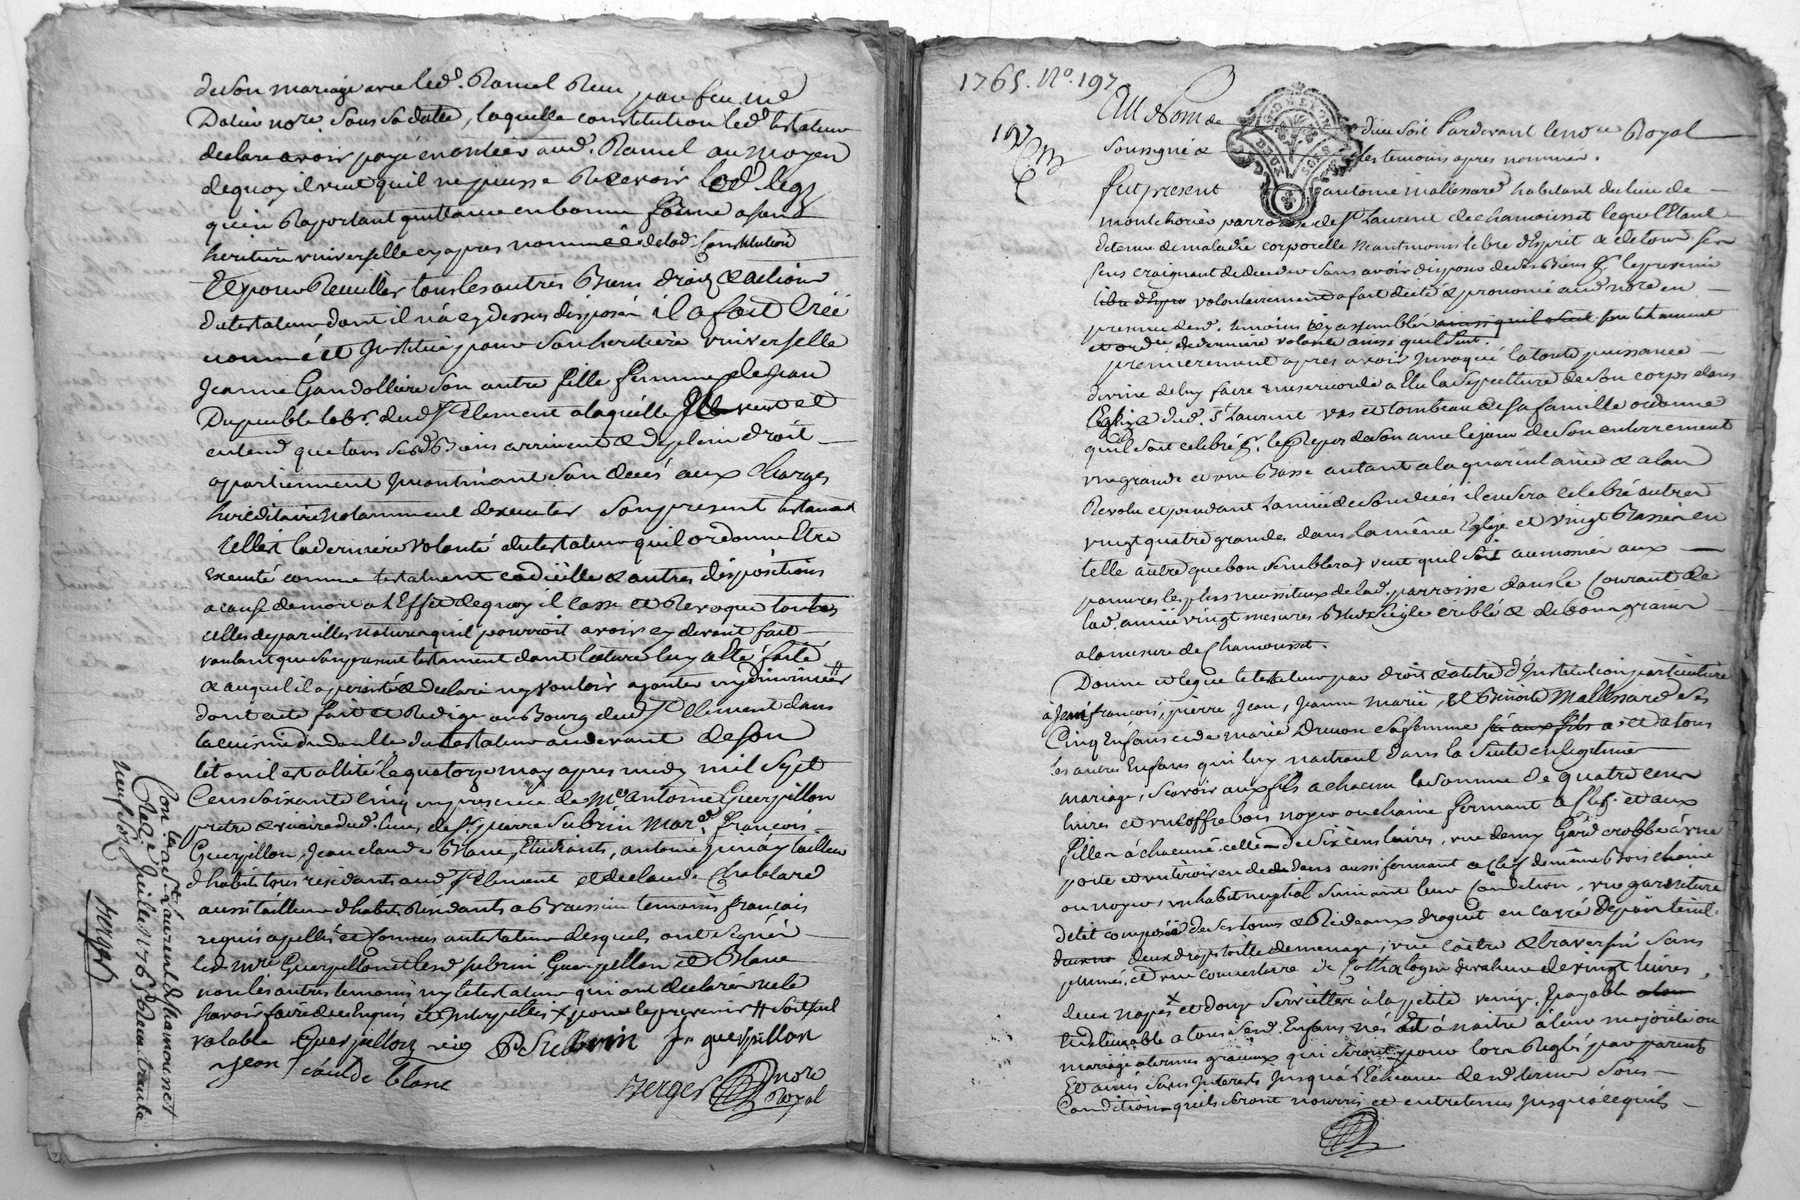 de son mariage avec led. Ramel Reçu par feu me
nore. sous sa datte, laquelle constitution led. testateur
declare avoir payé en entier aud. Ramel au moyen
dequoy il veut qu'il ne puisse Recevoir led. legs
qu'en Raportant quittance en bonne forme a son
heritiere universelle cy apres nommée de lad. Constitution
Et pour Recuillir tous les autres Biens droits & actions
du testateur dont il n'a cy dessus disposé il a fait Créé
nommé et Institué pour son heritiere universelle
Jeanne Gandolliere son autre fille femme de Jean
Dupeuble labr. dud. St Clement a laquelle Il veut et
entend que tous sesd. Biens arrivent & de plein droit
apartiennent Incontinant son decés aux Charges
hereditaires notamment d'executer son present testament
Telle est la derniere volonté du testateur qu'il ordonne Etre
executé comme testament codicille & autres dispositions
a cause de mort a l'Effet dequoy il casse et Revoque toutes
celles de pareilles nature qu'il pourroit avoir cy devant fait
voulant que son present testament dont lecture luy a Eté faite
& auquel il a persisté & declaré n'y vouloir ajouter ny diminuer #
dont acte fait et Redigé au Bourg dud. St Clement dans
la cuisine du domille du testateur au devant de son
lit ou il est allité le quatorze may apres midy mil sept
Cens soixante cinq en presence de Me antoine Guerpillon
pretre & vicaire dud. lieu, de Sr. pierre Subrin Mard. francois
Guerpillon, Jean claude Blanc, Etudiants, antoine tailleur
d'habits tous residants aud. St Clement et de claude Chatelard
aussi tailleur d'habits Residants a Brussieu temoins francais
requis apellés et connus au testateur desquels ont signé
lesd. mre Guerpillon et lesd. Subrin, Guerpillon et Blanc
non les autres temoins ny le testateur qui ont declaré ne le
scavoir faire de ce Enquis et Interpellés x pour le prevenir # soit nul
valable Guerpillon vic P Subrin fr guerpillon
Jean Claude blanc
Berger nore
Royal
Con. les a St Laurent de chamousset
le 2 juillet 1765 Receu trente
neuf sols
Berger
1765. No. 197
197
Au Nom de dieu soit Pardevant le nore Royal
soussigné & les temoins apres nommés.
fut present antoine mallessard habitant du lieu de
montchorier parroisse de St Laurent de chamousset lequel Etant
detenu de maladie corporelle neantmoins libre d'Esprit & de tous ses
sens craignant de deceder sans avoir disposé de ses Biens pr. le prevenir
libre d'Espri volontairement a fait dicté & prononcé aud. nore en
presence desd. temoins icy assemblés ainsi qu'il suit son testament
et ordce de derniere volonté ainsi qu'il suit.
premierement apres avoir Invoqué la toute puissance
divine de luy faire misericorde a Elu la sepulture de son corps dans
l'Eglise dud. St Laurent vas et tombeau de sa famille ordonne
qu'il soit celebré pr. le Repos de son ame le jour de son enterrement
une grande et une Basse autant a la quarantaine & a l'an
Revolu et pendant l'année de son decés il en sera celebré autres
vingt quatre grandes dans la même Eglise et vingt Basses en
telle autre que bon semblera, veut qu'il soit aumoné aux
pauvres les plus necessiteux de lad. parroisse dans le Courant de
lad. année vingt mesures Bled seigle criblé & de bon grain
a la mesure de Chamousset.
Donne et legue le testateur par droit & a titre d'Institution particuliere
à Jean françois, pierre Jean, Jeanne Marie, et Benoite Mallessard ses
Cinq Enfans et de marie Drivon sa femme sç aux fils a et a tous
les autres Enfans qui luy naitront dans la suite en legitime
mariage, Scavoir aux fils a chacun la somme de quatre cens
livres et un coffre bois noyer ou chaine fermant a clef. et aux
filles à chacune celle de six cens livres, une demy Garderobbe à une
porte et un tiroir en dedans aussi fermant a clef de même Bois chaine
ou noyer, un habit nuptial suivant leur Condition, une garniture
de lit composée de ses tours & Rideaux droguet en carré depoin teint
deux draps toille de menage, une coitre & traversin sans
plumes, et une couverture de Cathalogne de valeur de vingt livres,
deux napes x et douze serviettes à la petite venise, payable
Exdeliurable a tous sesd. Enfans nés et à naitre à leur majorité ou
mariage a termes gracieux qui seront pour lors Reglés par parents
Et amis sans Interets jusqu'a l'Echeance desd. termes sous
Condition qu'ils seront nourris et entretenus jusqu'à lequels